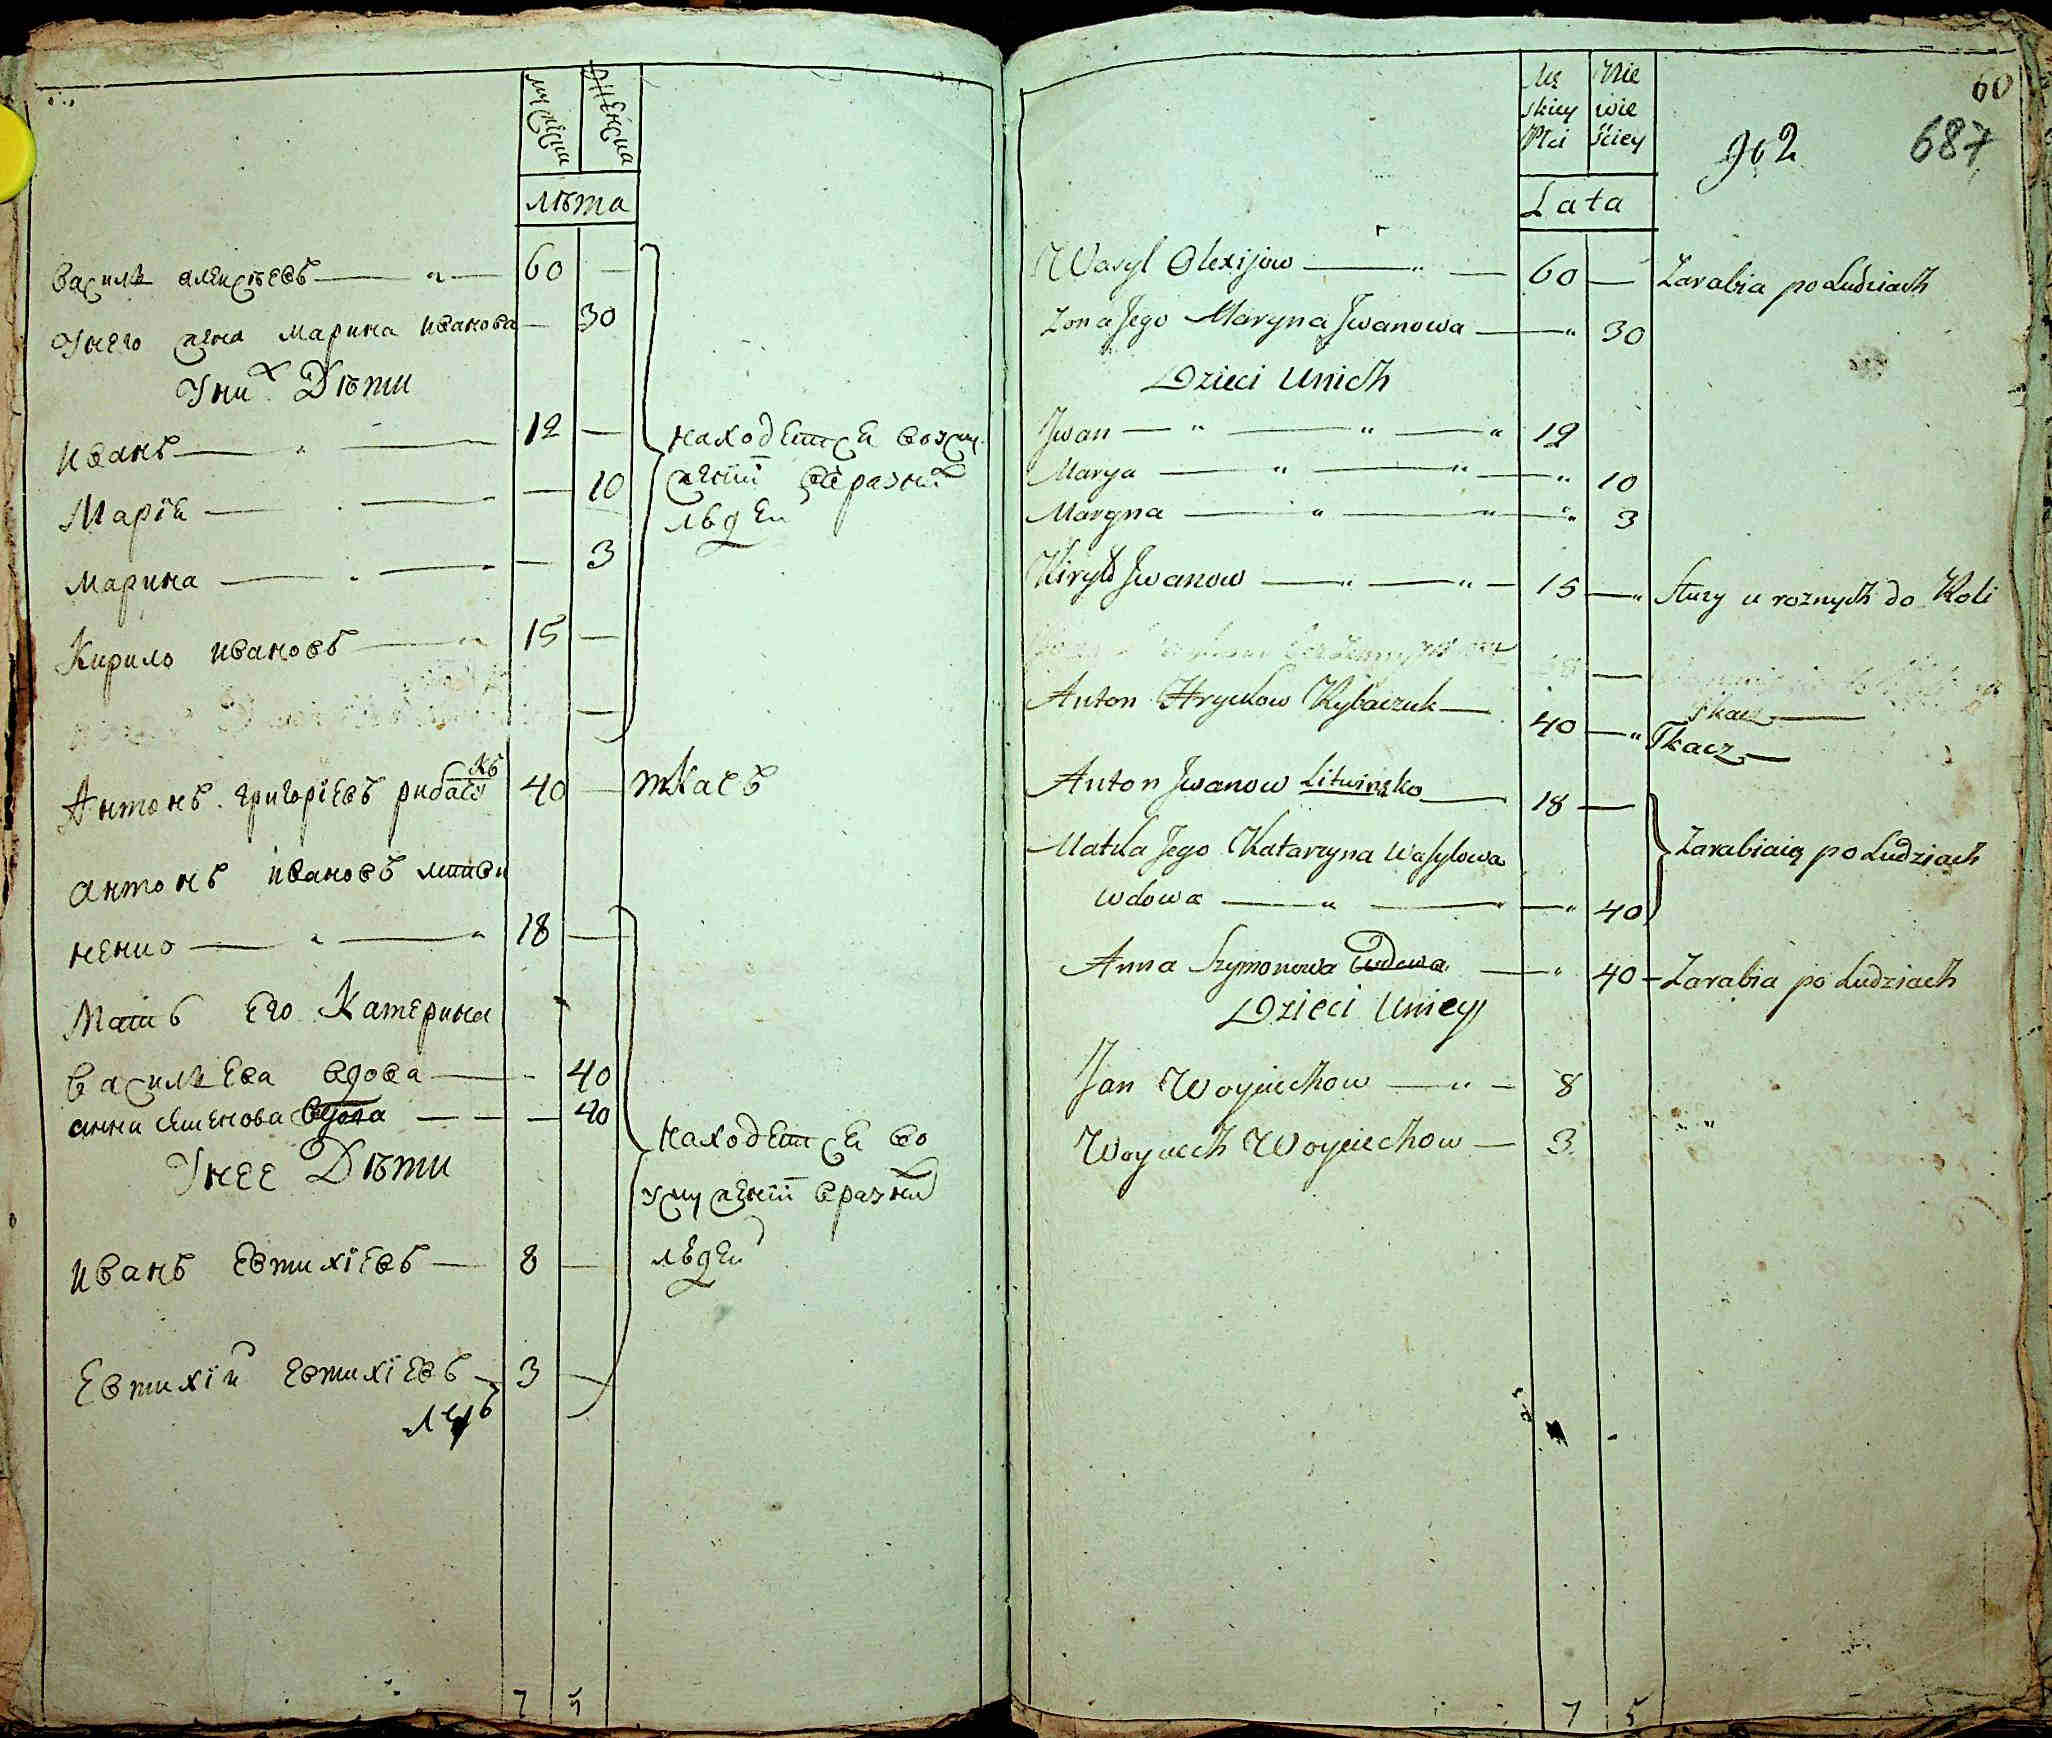 мужеска женска
лѣта
Василь алексѣевъ — 60 —
Унего жена Марина Иванова — 30
Уних Дѣти
Иванъ — 12 —
Марія — — 10
Марина — — 3
Кирило Ивановъ — 15 —
находятся воуслу
женіи в разных
людей
Антонъ григоріевъ рибачукъ 40 — ткачъ
антонъ Ивановъ литви
ненко — 18 —
Мать Его Катерина
Васильева вдова — 40
анна семенова вдова — — — 40
Унее Дѣти
Иванъ Евтихіевъ — 8 —
Евтихій Евтихіевъ — 3 —
находятся во
услуженіи в разных
людей
7 5
Mę
skiey
Płci
Nie
wie
ściey
Lata
60
962
687
Wasyl Olexijow — 60 — Zarabia po Ludziach
Zona Jego Maryna Jwanowa — 30
Dzieci Unich
Jwan — 12
Marya — 10
Maryna — 3
Kiryło Jwanow — 15 — Służy u roznych do Roli
Anton Hryckow Rybaczuk — 40 — Tkacz —
Tkacz —
Anton Jwanow Litwinsko — 18 —
Matka Jego Katarzyna Wasylowa
wdowa — 40
Zarabiaią po Ludziach
Anna Szymonowa Wdowa — 40 — Zarabia po Ludziach
Dzieci Uniey
Jan Woyciechow — 8
Woyciech Woyciechow — 3
7 5